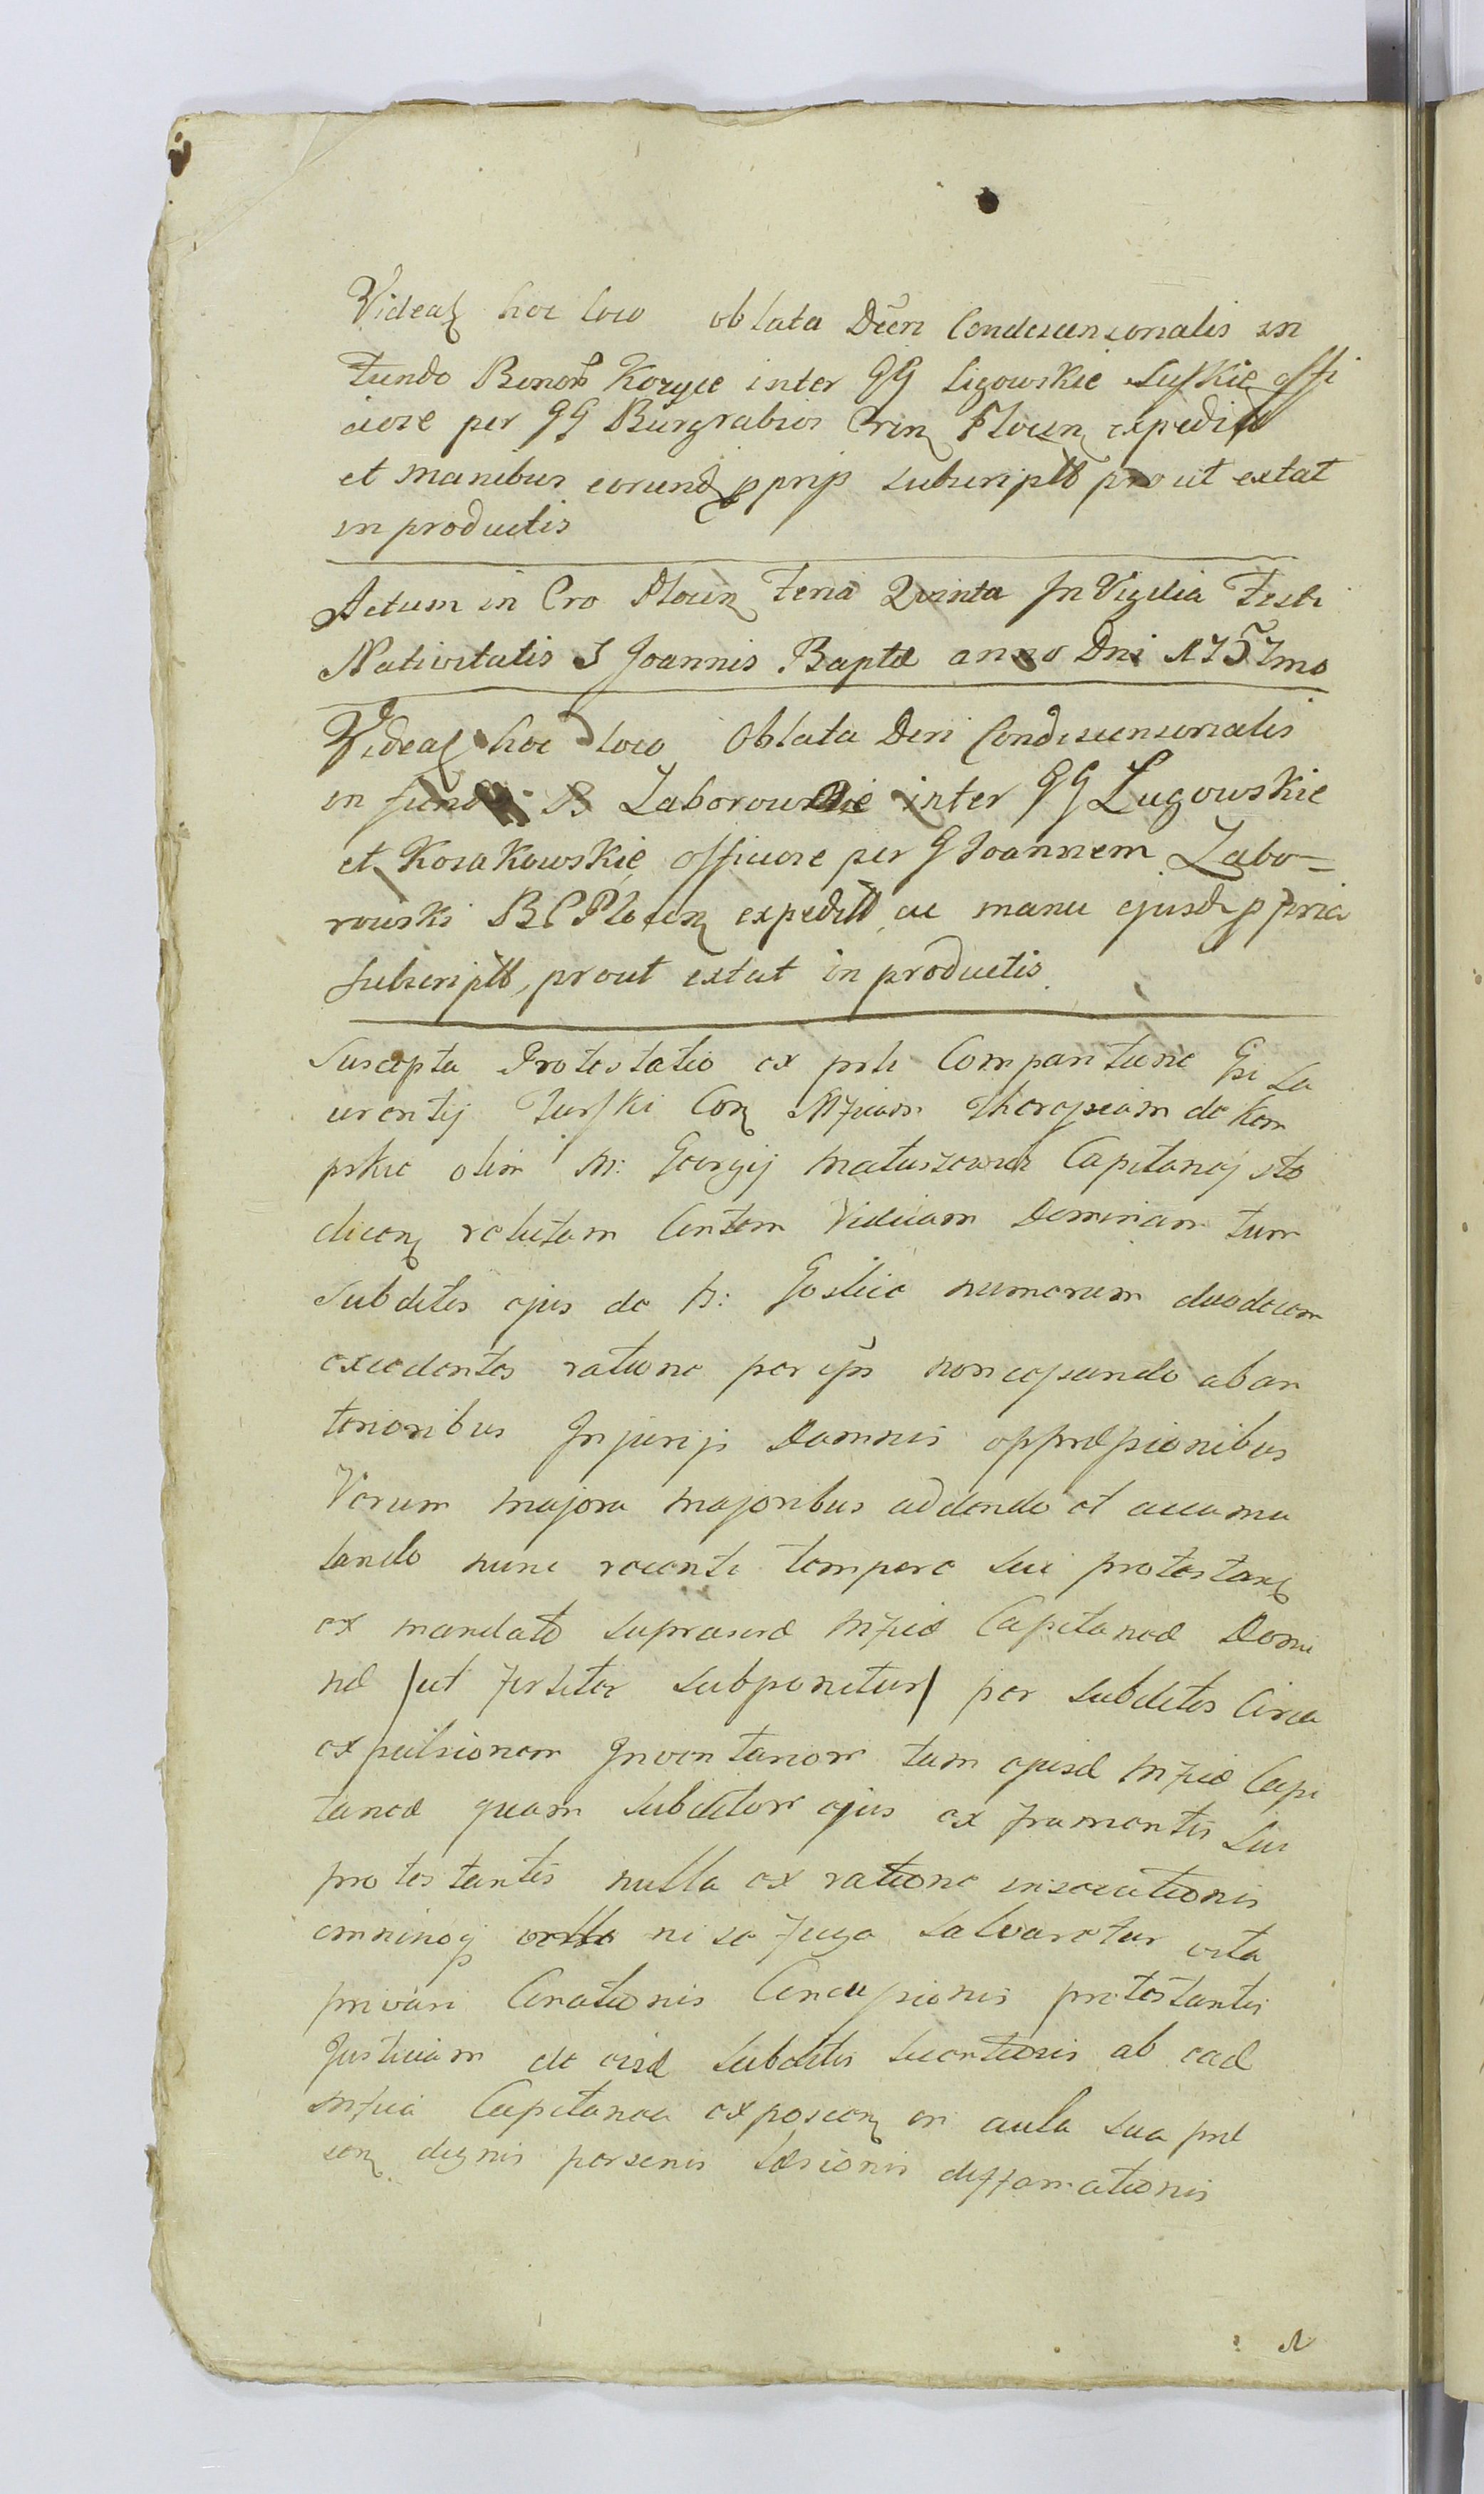 Videat hoc loco oblata Decri Condescensorialis in
Fundo Bonor Kozyce inter GG Ligowskie Luskie offi
ciose per GG Burgrabios Cren Plocen expedit
et manibus eorund pprijs subscriptt prout extat
in productis
Actum in Cro Plocen Feria Quinta In Vigilia Festi
Nativitatis S Joannis Baptæ anno Dni 1757mo
Videat hoc loco Oblata Dcri Condescensorialis
in fundo B Zaborowskie inter GG Lugowskie
et Kosakowskie officiose per G Joannem Zabo=
rowski BCPlocen expeditt ac manu ejusd ppria
subscriptt, prout extat in productis.
Suscepta Protestatio ex prti Comparitione Gsi La
urentij Turski Con Mficam Theressiam de Kem
pskie olim M: Georgij Matuszewicz Capitanej Sto
clicen relictam Contem Viduam Dominam tum
Subditos ejus de B: Goslice numerum duodecem
excedentes ratione per eps non cessando ab an
terioribus Injurijs Damnis oppræssionibus
Verum majora majoribus addendo et accumu
lando nunc recenti tempore sui protestan
ex mandato suprascræ Mficæ Capitaneæ Domi
næ /ut firsiter subponitur/ per subditos Circa
expulsionem Inventarior tum ejusd Mficæ Capi
taneæ quam Subditor ejus ex frumentis sui
protestantis nulla ex ratione insecutionis
omninoq ni se fuga salvaretur vita
privari Conationis Concussionis protestantis
Justiciam de eisd subditis ab ead
Mfica Capitanea exposcen in aula sua præ
sen dignis personis Læsionis diffamationis